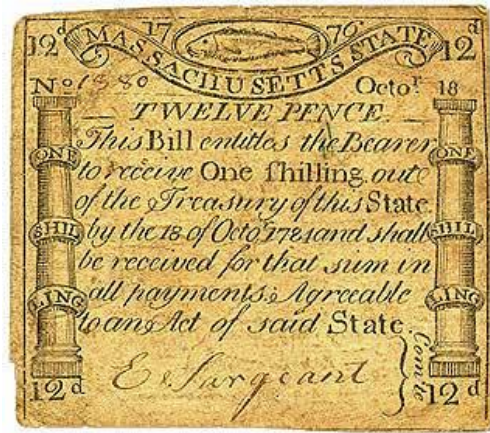 12d 1776 12d
MASSACHUSETTS STATE
No 1380 Octor. 18
TWELVE PENCE
This Bill entitles the Bearer
to receive One ſhilling out
of the Treasury of this State
by the 18 of Octo 1784 and shall
be received for that sum in
all payments; Agreeable
to an Act of said State.
ONE ONE
SHIL SHIL
LING LING
E Sargeant
Comte
12d 12d